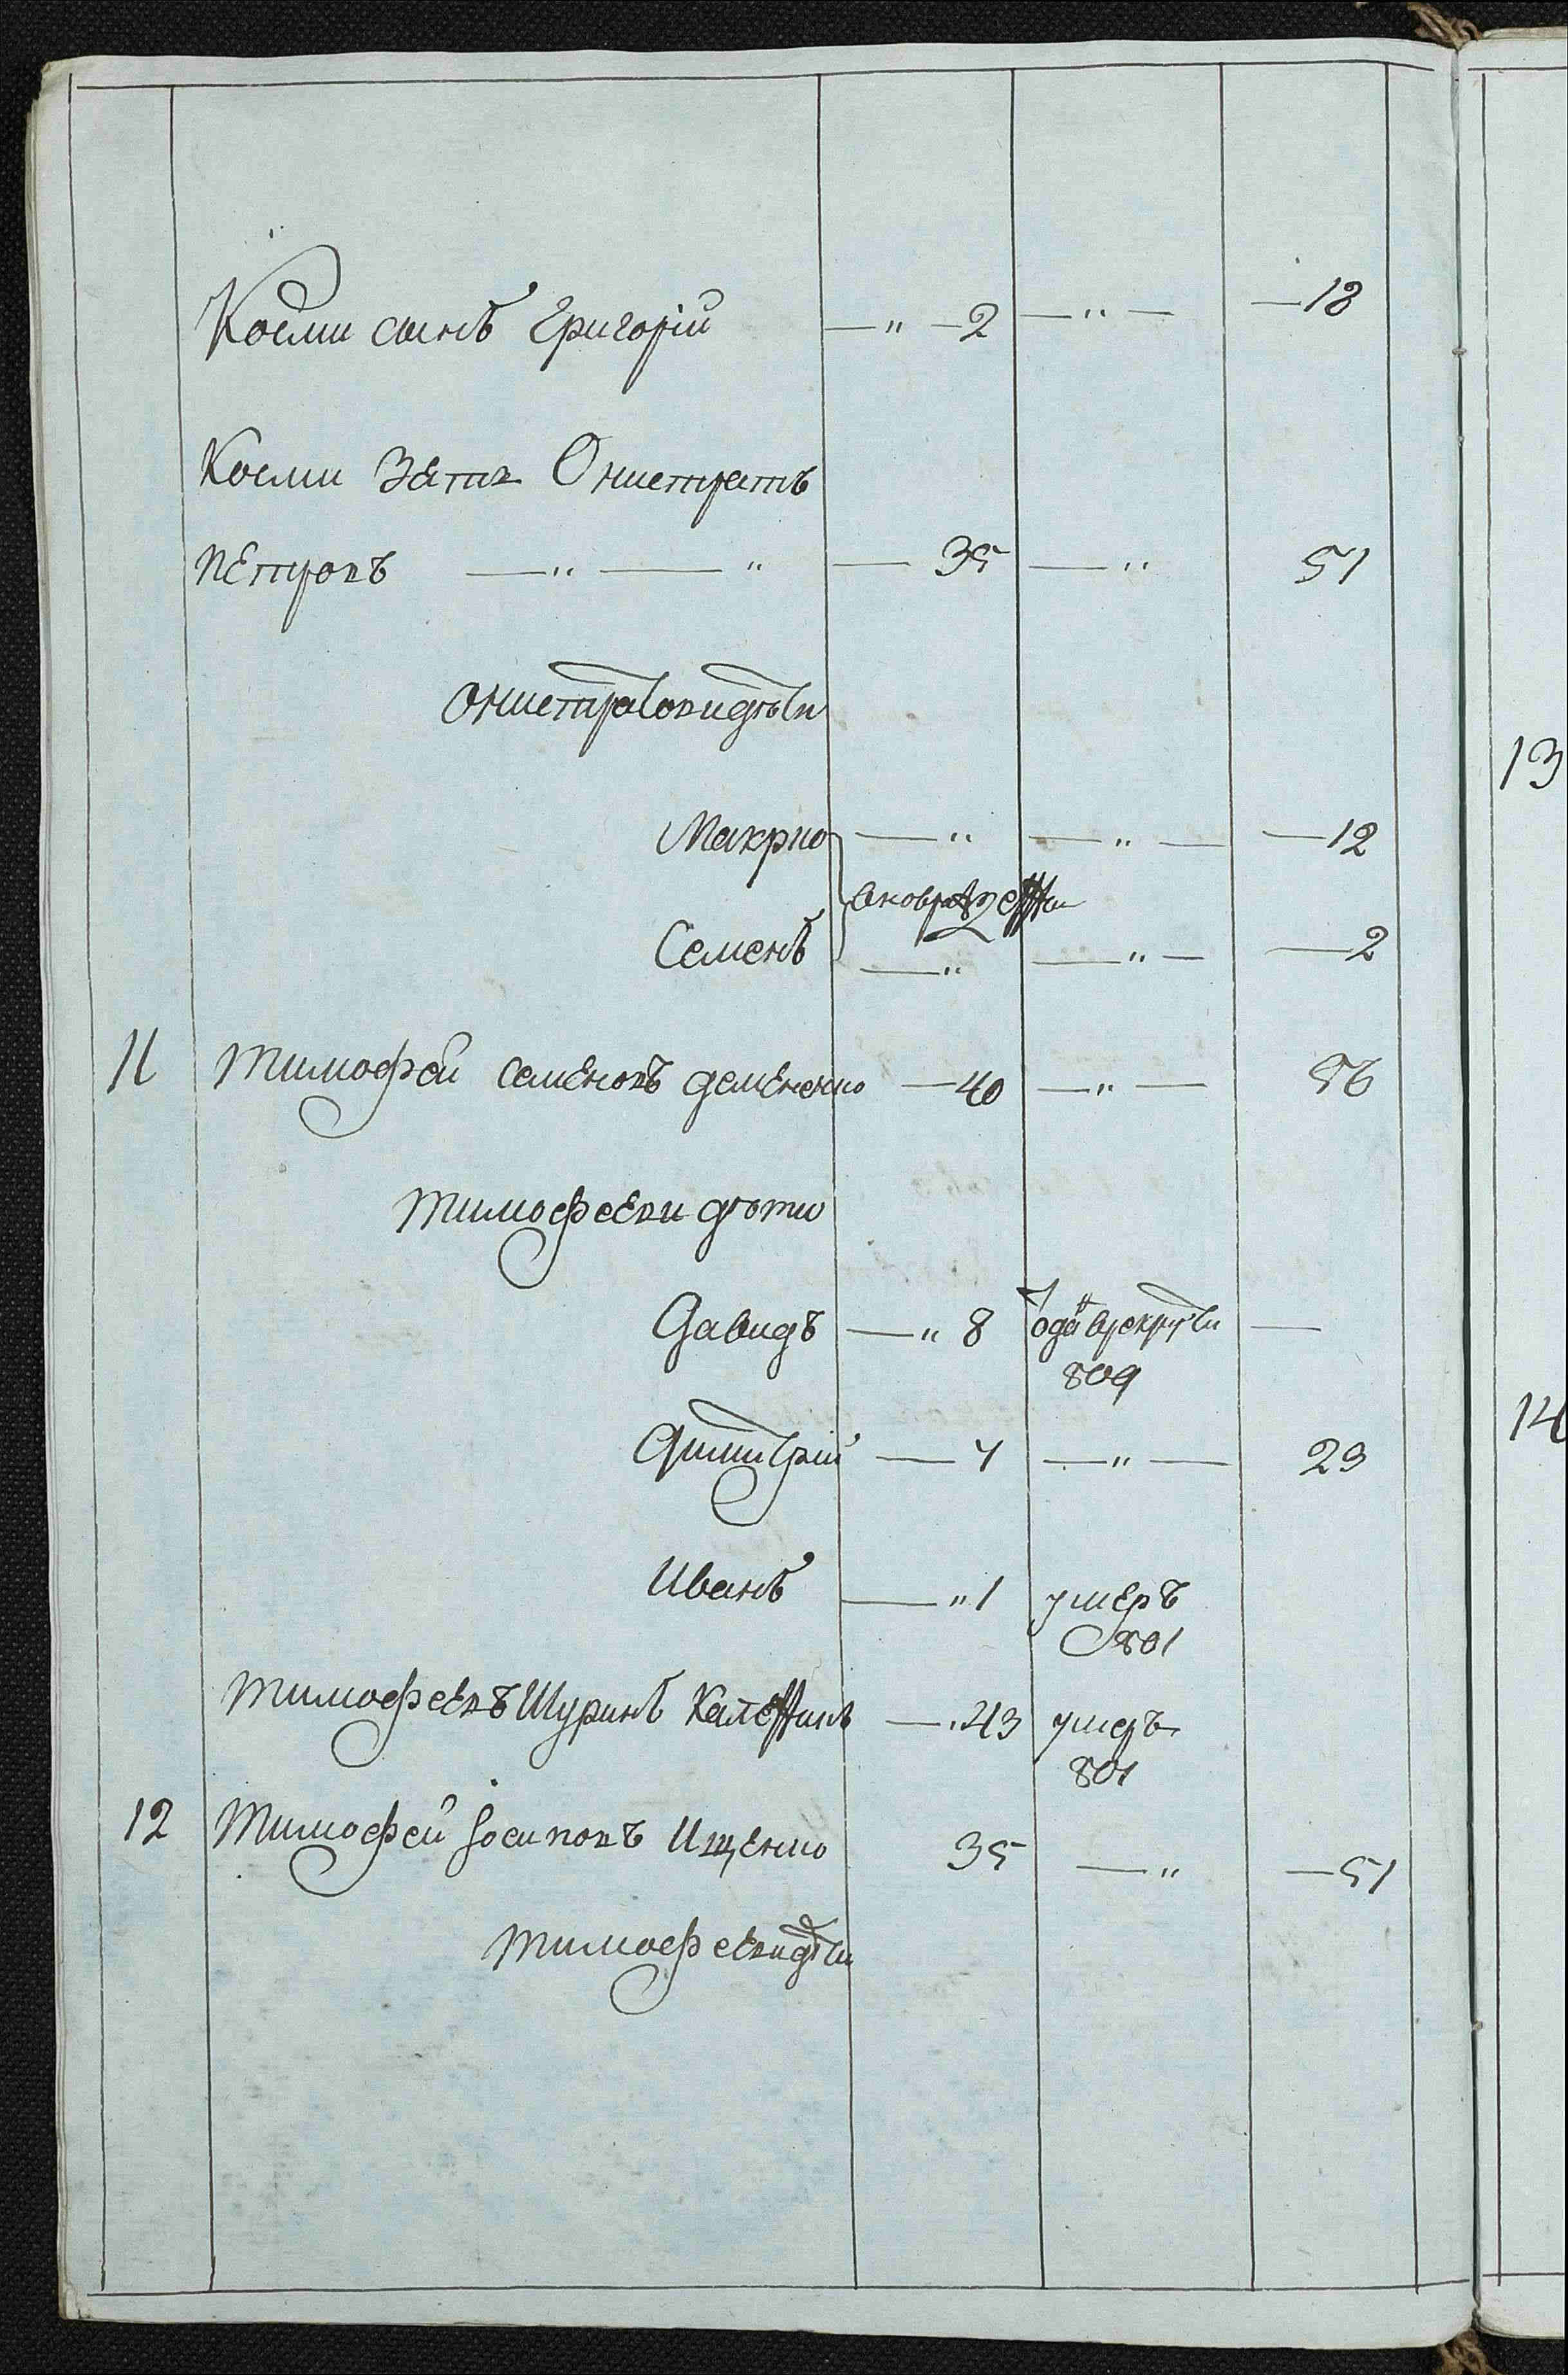 Косми сынъ Григорій —„— 2 —„— —18
Косми зять Онистратъ
Петровъ —„— „ — 35 —„ 51
Онистратови дѣти
Макрио —„ —„— —12
вноврожденни
Семенъ —„ —„— —2
11 Тимофей Семеновъ Демененко —40 —„— 56
Тимофееви дѣти
Давидъ —„ 8 одан в рекруты —
809
Димитрій — 4 —„— 23
Иванъ —„ 1 умеръ
801
Тимофеевъ Шуринъ Каленикъ —„43 умеръ
801
12 Тимофей Іосиповъ Ищенко 35 —„ —51
Тимофееви дѣти
13
14